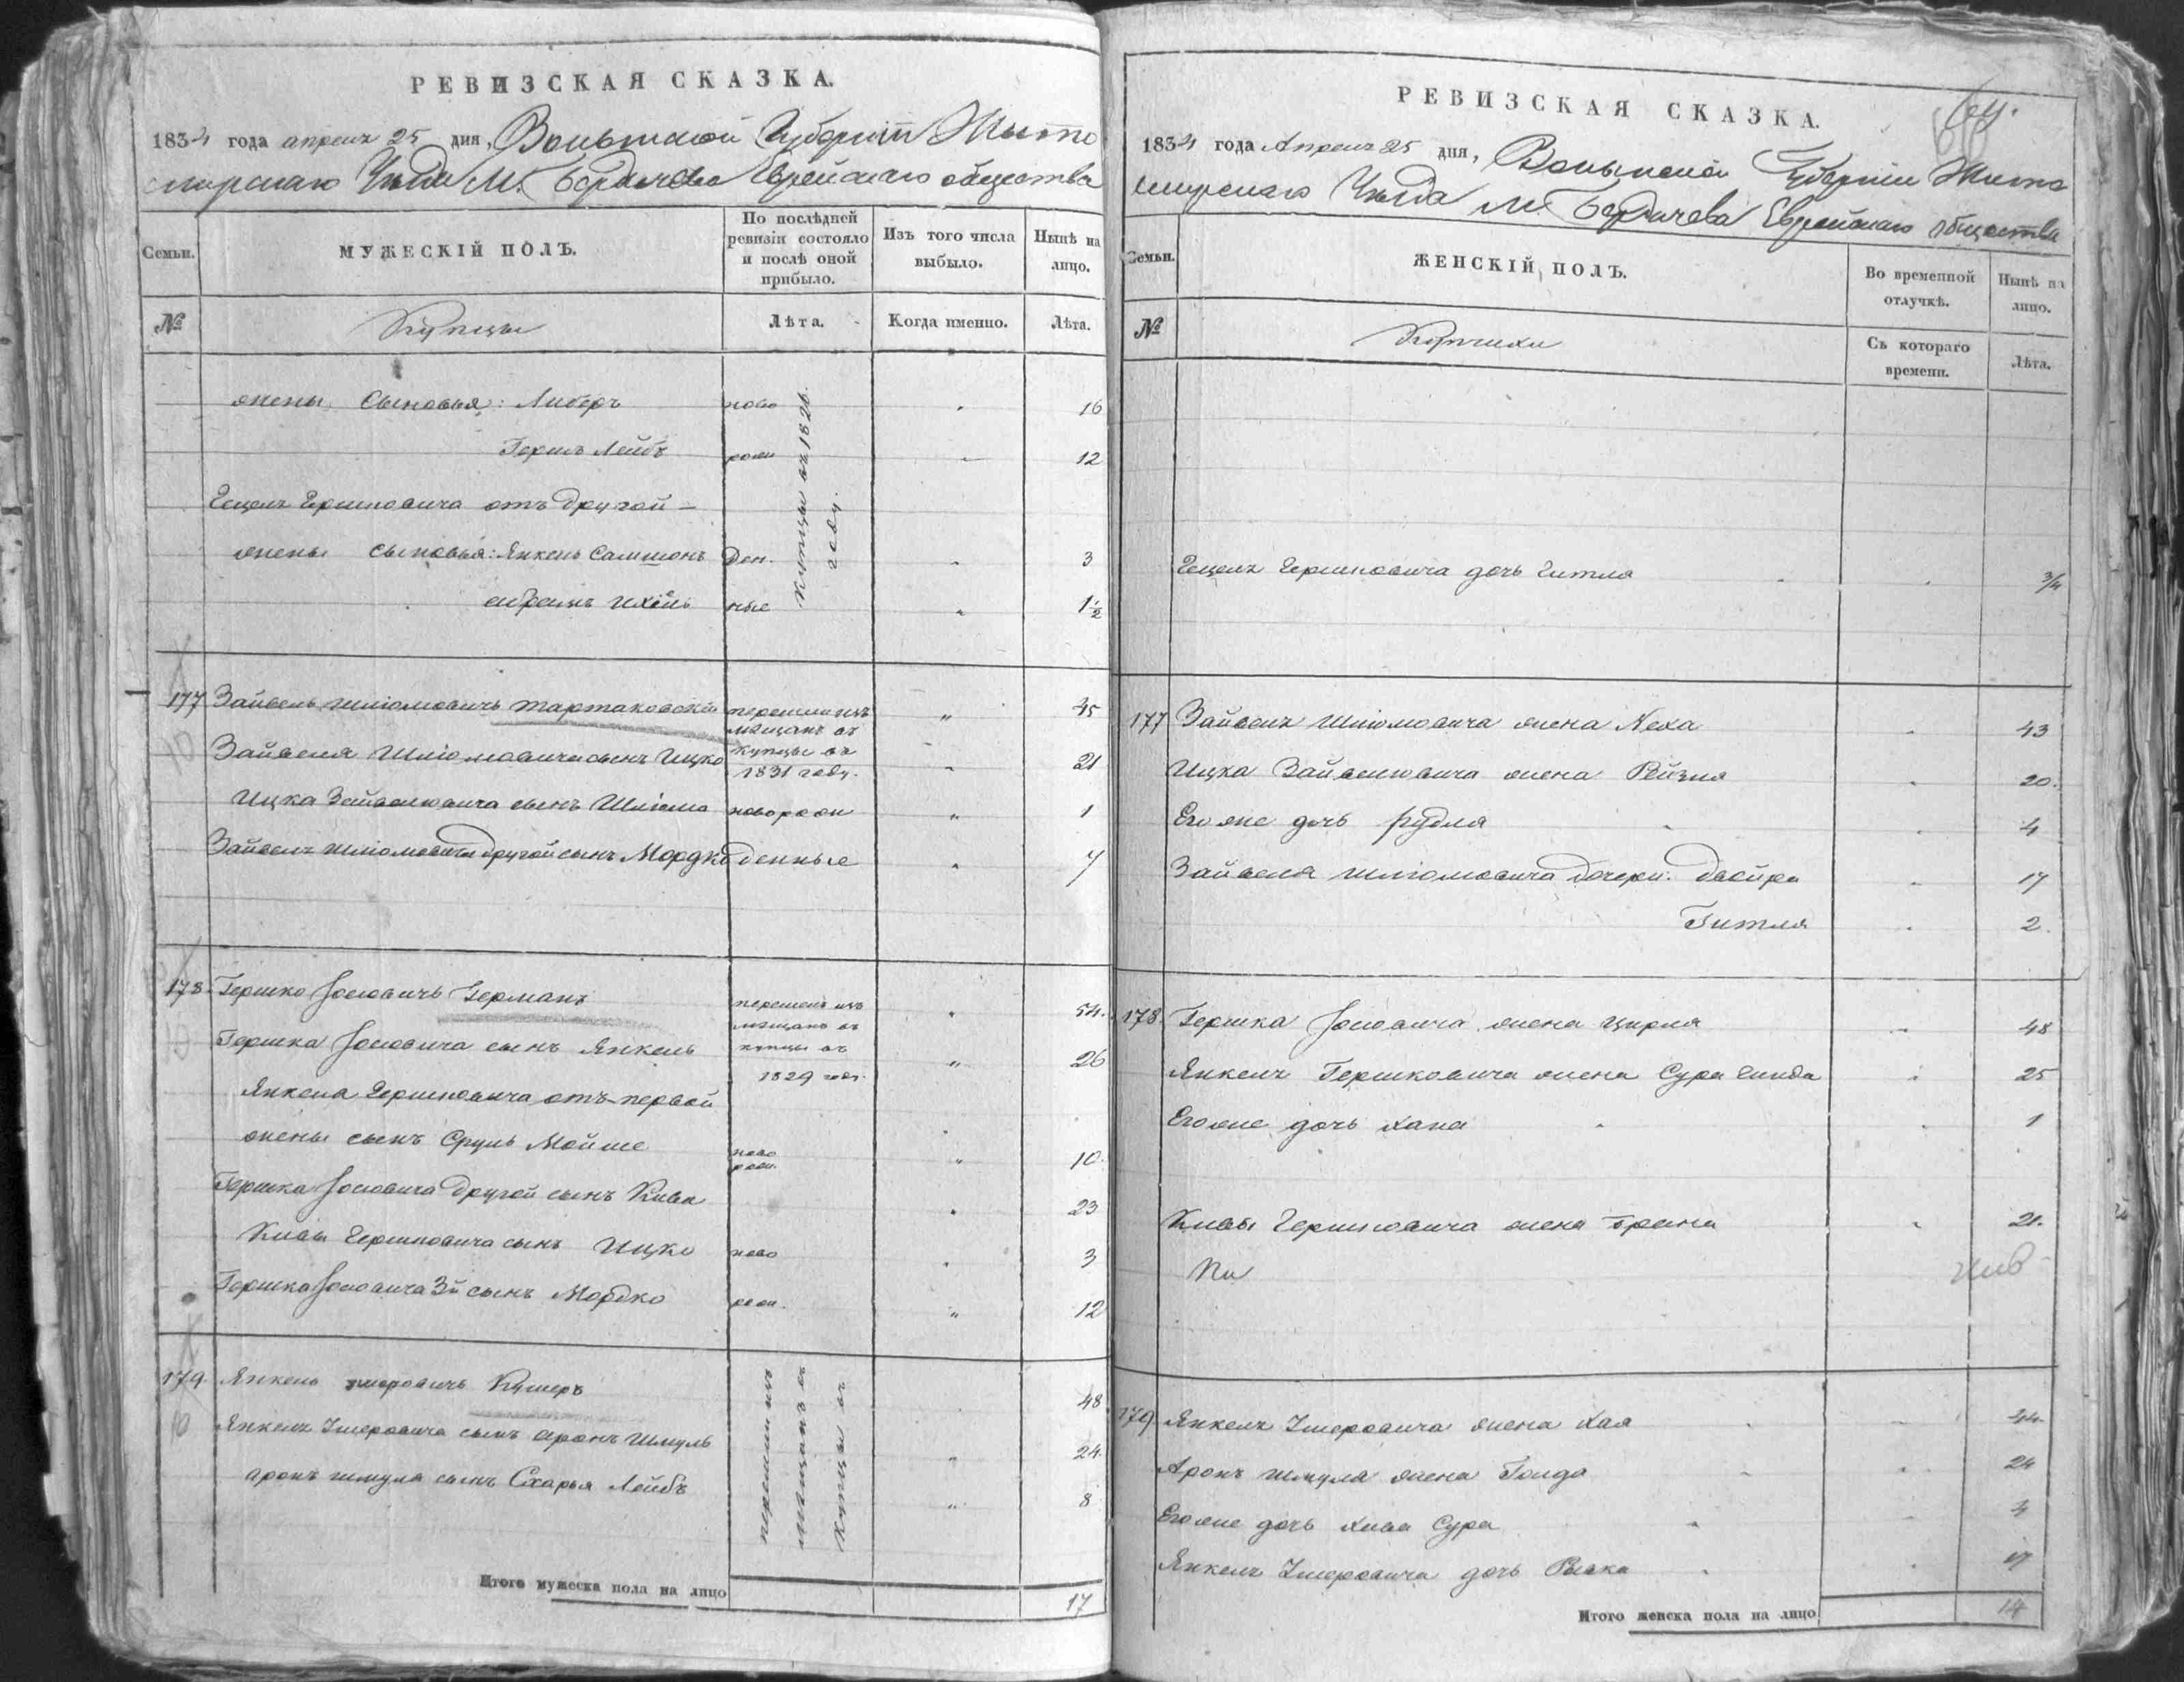 РЕВИЗСКАЯ СКАЗКА.
1834 года апреля 25 дня, Волынской Губерніи Жыто
мирскаго Уезда М. Бердичева Еврейскаго общества
Семьи.
МУЖЕСКІЙ ПОЛЪ.
По послѣдней ревизіи состояло и послѣ оной прибыло.
Изъ того числа выбыло.
Нынѣ на лицо.
№
Купцы
Лѣта.
Когда именно.
Лѣта.
жены сыновья: Либеръ ново " 16
Гершъ Лейбъ рож " 12
Гецеля Гершковича отъ другой
жены сыновья: Янкель Самшонъ ден. " 3
ные " 1½
купцы въ 1826
году.
177 Зайвель Шліомовичъ Тартаковскій перешли изъ " 45
мѣщанъ въ
Зайвеля Шліомовича сынъ Ицко купцы въ " 21
1831 году.
Ицка Зайвелювича сынъ Шліома новорож " 1
Зайвеля Шліомовича другой сынъ Мордко денные " 7
178 Гершко Іосіовичъ Германъ перешелъ изъ " 54.
мѣщанъ въ
Гершка Іосіовича сынъ Янкель купцы въ " 26
1829 году.
Янкеля Гершковича отъ первой
жены сынъ Сруль Мойше ново рож. " 10
Гершка Іосіовича другой сынъ Кива " 23
Кивы Гершковича сынъ Ицко ново " 3
Гершка Іосіовича 3й сынъ Мордко рож. " 12
179 Янкель Кушеръ 48
Янкеля сынъ Аронъ Шмуль " 24
Аронъ Шмуля сынъ Схарья Лейбъ " 8
перешли изъ
мѣщанъ въ
купцы въ
Итого мужеска пола на лицо 17
РЕВИЗСКАЯ СКАЗКА.
1834 года Апреля 25 дня, Волынской Губерніи Жито
мирскаго Уезда М. Бердичева Еврейскаго общества
Семьи.
ЖЕНСКІЙ ПОЛЪ.
Во временной отлучкѣ.
Нынѣ на лицо.
№
Купчихи
Съ котораго времени.
Лѣта.
Гецеля Гершковича дочь Гитля " ¾
177 Зайвеля Шліомовича жена Неха " 43
Ицка Зайвелювича жена Рейзля " 20.
Его же дочь Рудля " 4
Зайвеля Шліомовича дочери: Двойра " 17
Гитля " 2.
178 Гершка Іосіовича жена Цирля " 48
Янкеля Гершковича жена Сура Гинда " 25
Его же дочь Хана " 1
Кивы Гершковича жена Брана " 21.
179 Янкеля жена Хая " 44
Аронъ Шмуля жена Голда " 24
Его же дочь Хива Сура " 4
Янкеля дочь Ривка " 17
Итого женска пола на лицо 14